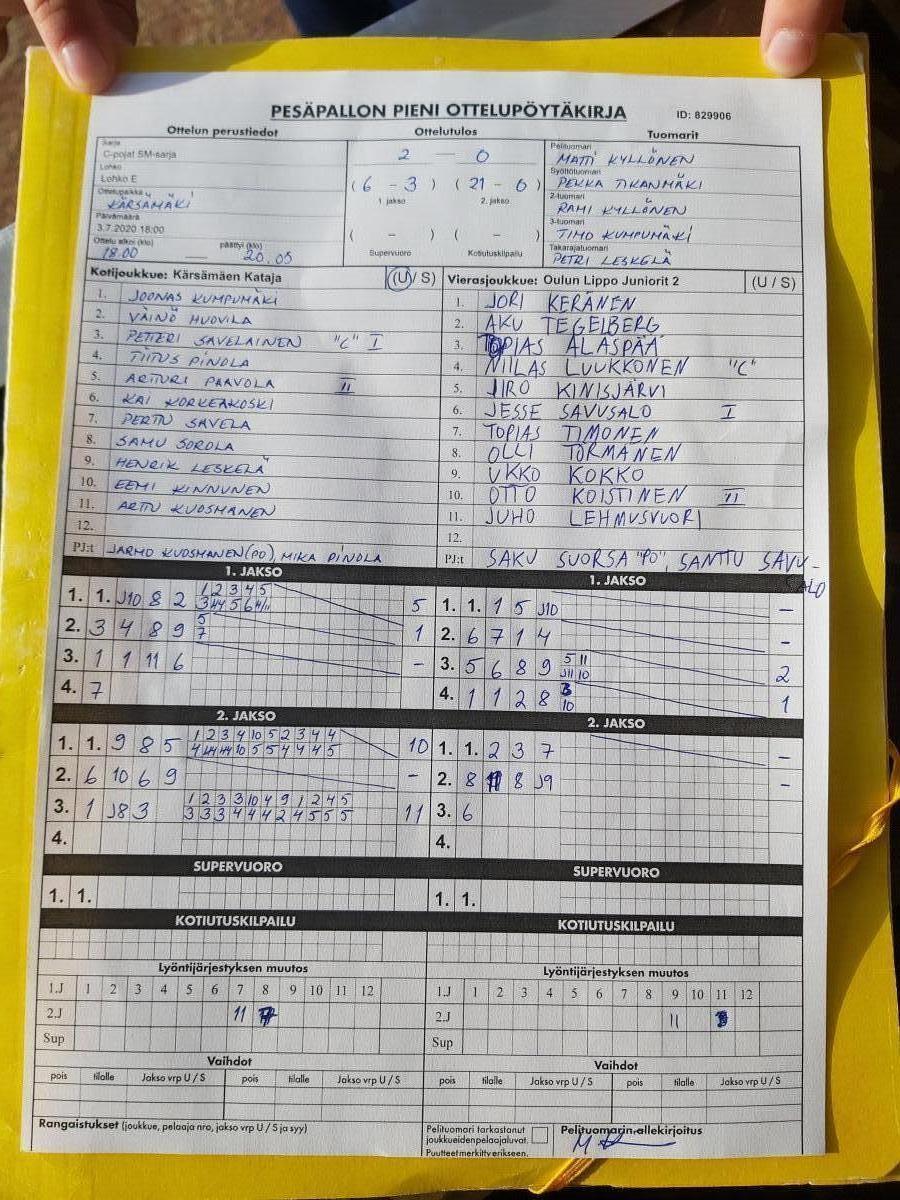 PESÄPALLON PIENI OTTELUPÖYTÄKIRJA ID: 829906
Ottelun perustiedot Ottelutulos Tuomarit
Sarja
C-pojat SM-sarja
Lohko
Lohko E
Ottelupaikka
KÄRSÄMÄKI
Päivämäärä
3.7.2020 18:00
Ottelu alkoi (klo) päättyi (klo)
18.00 — 20.05
2 — 0
(6 - 3) (21 - 0)
1. jakso 2. jakso
( - ) ( - )
Supervuoro Kotiutuskilpailu
Pelituomari
MATTI KYLLÖNEN
Syöttötuomari
PEKKA TIKANMÄKI
2-tuomari
RAMI KYLLÖNEN
3-tuomari
TIMO KUMPUMÄKI
Takarajatuomari
PETRI LESKELÄ
Kotijoukkue: Kärsämäen Kataja (U / S)
1. JOONAS KUMPUMÄKI
2. VÄINÖ HUOVILA
3. PETTERI SAVELAINEN "C" I
4. TIITUS PINOLA
5. ARTTURI PAAVOLA II
6. KAI KORKEAKOSKI
7. PERTTU SAVELA
8. SAMU SOROLA
9. HENRIK LESKELÄ
10. EEMI KINNUNEN
11. ARTTU KUOSMANEN
12.
PJ:t JARMO KUOSMANEN (PO), MIKA PINOLA
Vierasjoukkue: Oulun Lippo Juniorit 2 (U / S)
1. JORI KERÄNEN
2. AKU TEGELBERG
3. TOPIAS ALASPÄÄ
4. NIILAS LUUKKONEN "C"
5. JIRO KINISJÄRVI
6. JESSE SAVUSALO I
7. TOPIAS TIMONEN
8. OLLI TÖRMÄNEN
9. UKKO KOKKO
10. OTTO KOISTINEN II
11. JUHO LEHMUSVUORI
12.
PJ:t SAKU SUORSA "PO", SANTTU SAVU-
ALO
1. JAKSO
1. 1. J10 8 2 1 2 3 4 5 5
2. 3 4 8 9 5 1
7
3. 1 1 11 6 –
4. 7
1. JAKSO
1. 1. 1 5 J10 –
2. 6 7 1 4 –
3. 5 6 8 9 5 11 2
J11 10
4. 1 1 2 8 3 1
10
2. JAKSO
1. 1. 9 8 5 1 2 3 4 10 5 2 3 4 4 10
2. 6 10 6 9 –
3. 1 J8 3 1 2 3 3 10 4 9 1 2 4 5 11
3 3 3 4 4 4 2 4 5 5 5
4.
2. JAKSO
1. 1. 2 3 7 –
2. 8 8 J9 –
3. 6
4.
SUPERVUORO
1. 1.
SUPERVUORO
1. 1.
KOTIUTUSKILPAILU
KOTIUTUSKILPAILU
Lyöntijärjestyksen muutos
1.J 1 2 3 4 5 6 7 8 9 10 11 12
2.J 11
Sup
Lyöntijärjestyksen muutos
1.J 1 2 3 4 5 6 7 8 9 10 11 12
2.J 11
Sup
Vaihdot
pois tilalle Jakso vrp U / S pois tilalle Jakso vrp U / S
Vaihdot
pois tilalle Jakso vrp U / S pois tilalle Jakso vrp U / S
Rangaistukset (joukkue, pelaaja nro, jakso vrp U / S ja syy)
Pelituomari tarkastanut
joukkueiden pelaajaluvat.
Puutteet merkitty erikseen.
Pelituomarin allekirjoitus